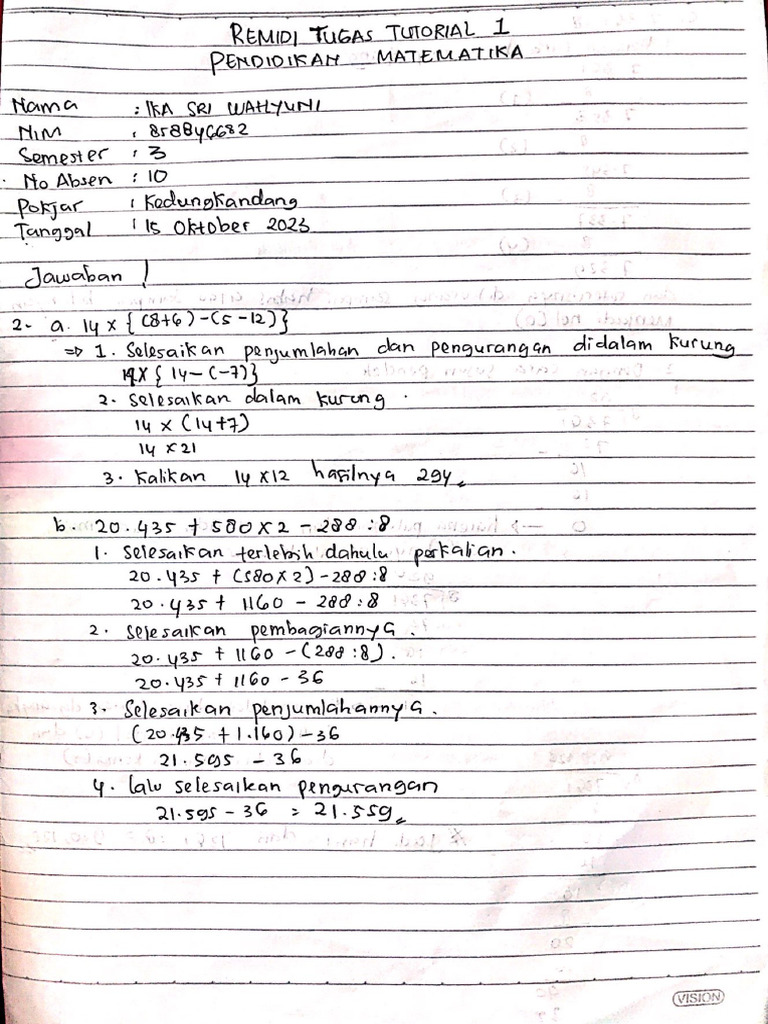 REMIDI TUGAS TUTORIAL 1
PENDIDIKAN MATEMATIKA
Nama : IKA SRI WAHYUNI
NIM : 858846682
Semester : 3
No Absen : 10
Pokjar : Kedungkandang
Tanggal : 15 Oktober 2023
Jawaban !
2. a. 14 x { (8+6) - (5 - 12) }
⇒ 1. Selesaikan penjumlahan dan pengurangan didalam kurung
14 x { 14 - (-7) }
2. Selesaikan dalam kurung .
14 x (14+7)
14 x 21
3. Kalikan 14 x 12 hasilnya 294
b. 20.435 + 580 x 2 - 288 : 8
1. Selesaikan terlebih dahulu perkalian .
20.435 + (580 x 2) - 288 : 8
20.435 + 1160 - 288 : 8
2. Selesaikan pembagiannya .
20.435 + 1160 - (288 : 8) .
20.435 + 1160 - 36
3. Selesaikan penjumlahannya .
(20.435 + 1.160) - 36
21.595 - 36
4. lalu selesaikan pengurangan
21.595 - 36 = 21.559
VISION